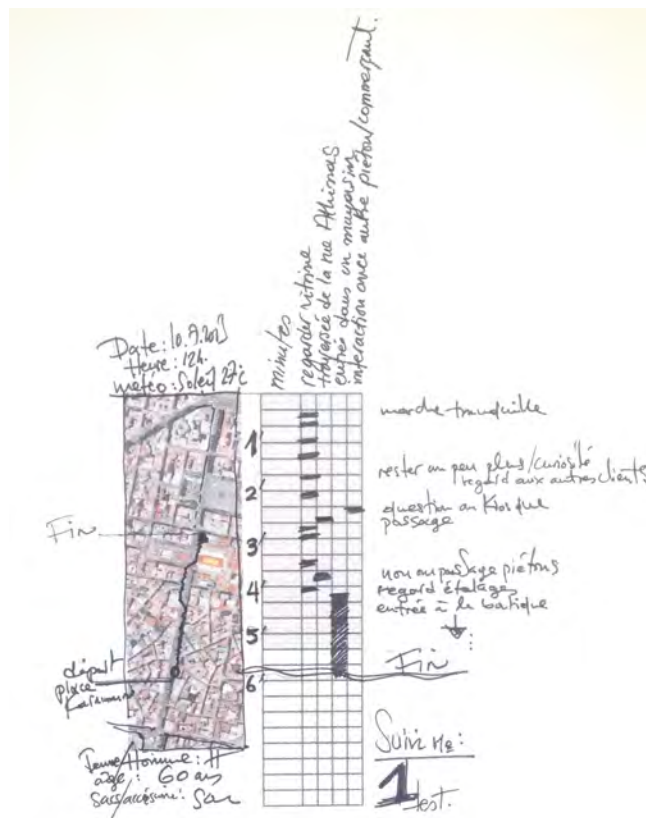 Date: 10.9.2013
Heure: 12h.
météo: Soleil 27°C
minutes
regarder vitrine
traversée de la rue Athinas
entrée dans un magasin
interaction avec autre piéton/commerçant.
1'
2'
3'
4'
5'
6'
marche tranquille
rester un peu plus/curiosité
regard aux autres clients
question au Kiosque
passage
non au passage piétons
regard étalage
entrée à la boutique
Fin
Fin
départ
place
Femme/Homme: H
age: 60 ans
Sacs/accessoire: Sac
Suivi No:
1
test.